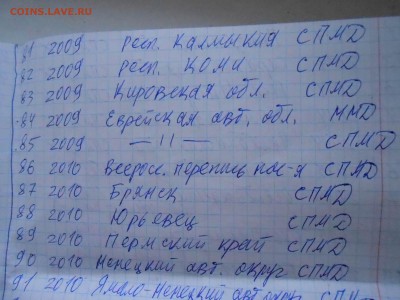 COINS.LAVE.RU
81 2009 респ. Калмыкия СПМД
82 2009 респ. Коми СПМД
83 2009 Кировская обл. СПМД
84 2009 Еврейская авт. обл. ММД
85 2009 — 11 — СПМД
86 2010 Всерос. перепись нас-я СПМД
87 2010 Брянск СПМД
88 2010 Юрьевец СПМД
89 2010 Пермский край СПМД
90 2010 Ненецкий авт. округ СПМД
91 2010 Ямало-Ненецкий авт. округ СПМД